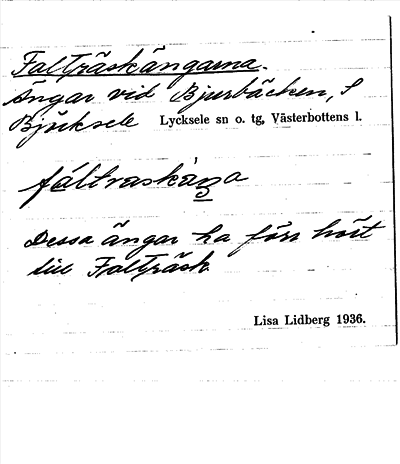 Falträskängarna.
Ängar vid Bjurbäcken, S
Bjurksele Lycksele sn o. tg, Västerbottens l.
Dessa ängar ha förr hört
till Falträsk.
Lisa Lidberg 1936.